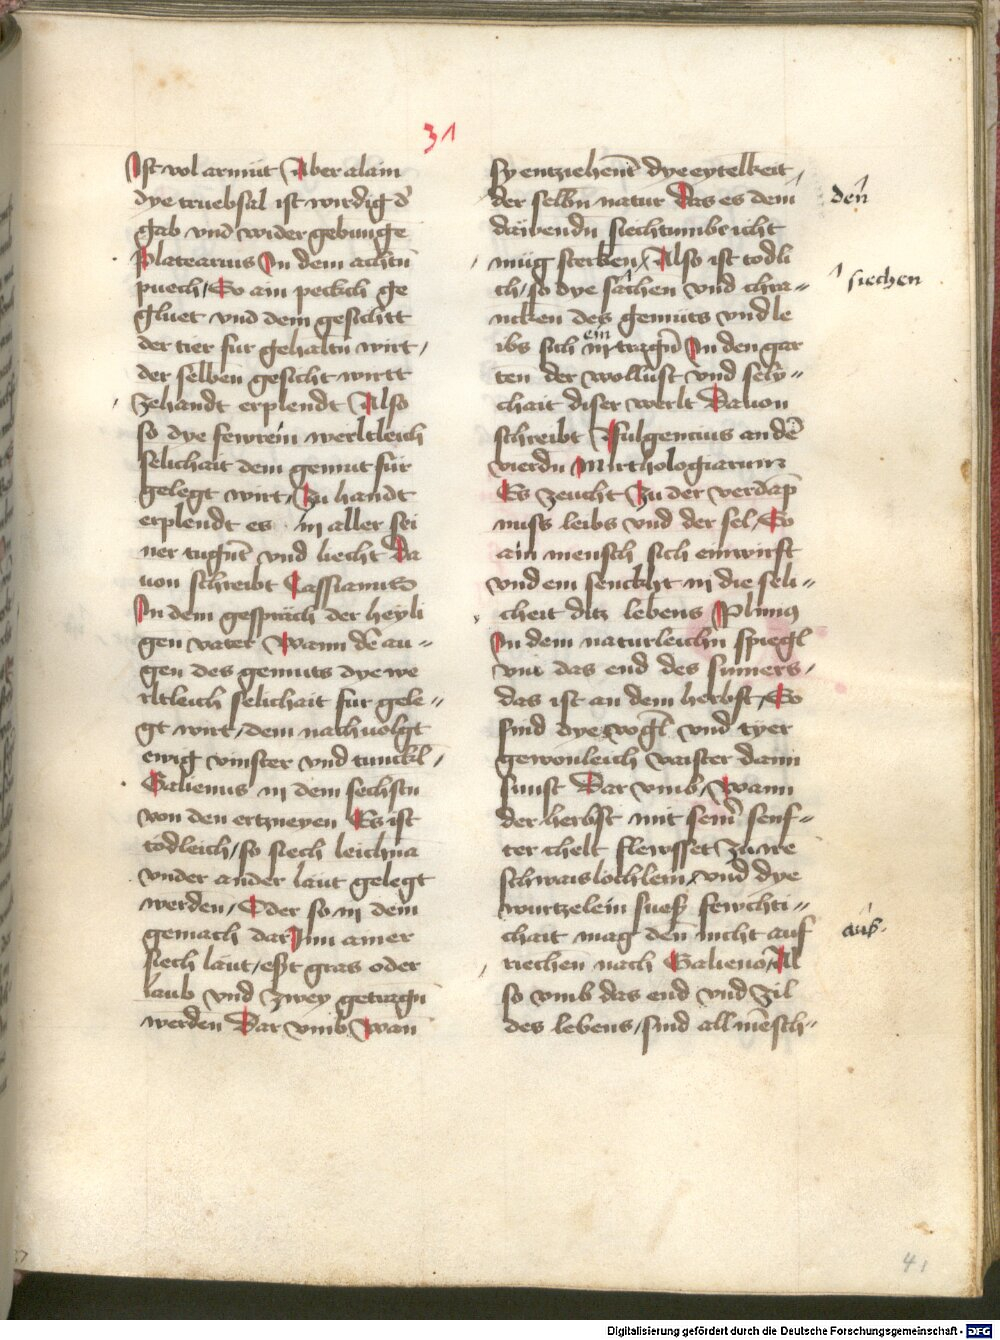 31
Ist vol armüt Aber alain
dye truebsal ist wirdig d'
gab vnd wider gebunge
Platearius In dem achtn̄
puech / So ain peckch ge
gluet vnd dem gesichtt
der tier fur gehaltn̄ wirt /
der selben gesicht wirtt
Zehandt erplendt Also
so dye fewrein werltleich
selichait dem gemut für
gelegt wirt / Zu handt
erplendt es in aller sei
ner tugn̄t vnd liecht Da
uon schreibt Cassianus
In dem gespräch der heyli
gen vater Wann dē au〃
gen des gemuts dye we
rltleich selichait fur gele〃
gt wirt / dem nachuolgt
ewig vinster vnd tunckl /
Galienus in dem sechstn̄
von den ertzneyen Es ist
tödleich / so siech leichna
vnder ander läut gelegt
werden / Oder so in dem
gemach dar Inn amer
siech läut / est gras oder
laub vnd Zwey getragn̄
werden Dar vmb Wan̄
sy entziehent̄ dye eytelkeit
der selbn̄ natur Das es dem
däibendn̄ siechtumbs icht
müg sterken Also ist todli
ch / so dye sachen vnd chra〃
ncken des gemüts vnd le
ibs sich in tragn̄ In den gar
ein
ten der wollust vnd sely〃
chait diser werlt Dauon
schreibt Fulgencius an dē
vierdn̄ Mirthologiarum
Es zeucht Zu der verdāp
nuss leibs vnd der sel / So
ain mensch sich einwirft
vnd ein senckht in die seli〃
cheit ditz lebens Plinius
In dem naturleichn̄ spiegl
vnt das end des sumers /
das ist an dem herbst / So
sind dye vogl̄ vnd tyer
gewonleich vaister dann
sunst Dar vmb / Wann
der herbst mit seim̄ senf〃
ter chelt slewsset Zu we
schwaislöchlein / vnd dye
wurtzelein suess fewchti〃
chait mag den̄ nicht auf
riechen nach Galieno / Al
so vmb das end vnd Zil
des lebens / sind all mēsch〃
den̄
siechen
aus
41
Digitalisierung gefördert durch die Deutsche Forschungsgemeinschaft - DFG